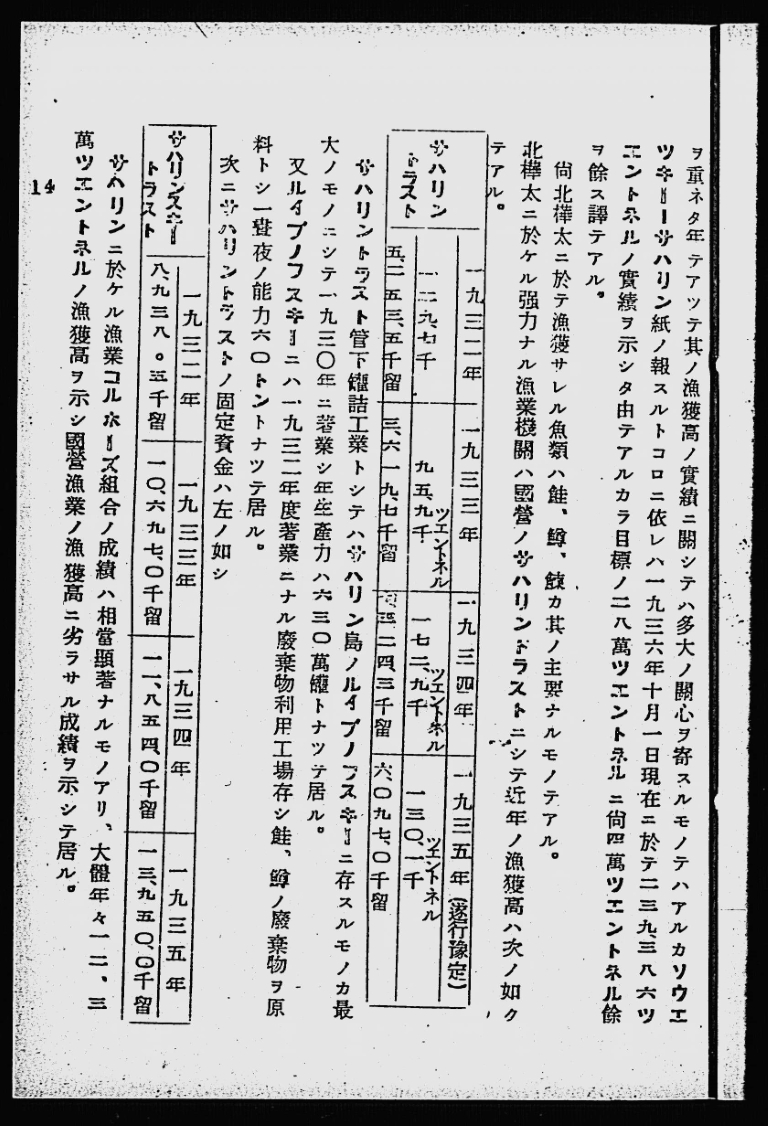 ヲ重ネタ年テアツテ其ノ漁獲高ノ實績ニ關シテハ多大ノ關心ヲ寄スルモノテハアルカソウエ
ツキーサハリン紙ノ報スルトコロニ依レハ一九三六年十月一日現在ニ於テ二三九、三八六ツ
エントネルノ實績ヲ示シタ由テアルカラ目標ノ二八萬ツエントネルニ尙四萬ツエントネル餘
ヲ餘ス譯テアル。
尙北樺太ニ於テ漁獲サレル魚類ハ鮭、鱒、鰊カ其ノ主要ナルモノテアル。
北樺太ニ於ケル强力ナル漁業機關ハ國營ノサハリントラストニシテ近年ノ漁獲高ハ次ノ如ク
テアル。
サハリン
トラスト
一九三二年 一九三三年 一九三四年 一九三五年(遂行豫定)
一二九、七千 九五、九千ツエントネル 一七二、九千ツエントネル 一三〇、一千ツエントネル
五、二五三、五千留 三、六一九、七千留 二四、三千留 六〇九七、〇千留
サハリントラスト管下罐詰工業トシテハサハリン島ノルイプノフスキーニ存スルモノカ最
大ノモノニシテ一九三〇年ニ着業シ年生產力ハ六三〇萬罐トナツテ居ル。
又ルイプノフスキーニハ一九三二年度着業ニナル廢棄物利用工場存シ鮭、鱒ノ廢棄物ヲ原
料トシ一晝夜ノ能力六〇トントナツテ居ル。
次ニサハリントラストノ固定資金ハ左ノ如シ
サハリンスキー
トラスト
一九三二年 一九三三年 一九三四年 一九三五年
八、九三八。三千留 一〇、六九七、〇千留 一一、八五四、〇千留 一三、九五〇、〇千留
サハリンニ於ケル漁業コルホーズ組合ノ成績ハ相當顯著ナルモノアリ、大體年々一二、三
萬ツエントネルノ漁獲高ヲ示シ國營漁業ノ漁獲高ニ劣ラサル成績ヲ示シテ居ル。
14